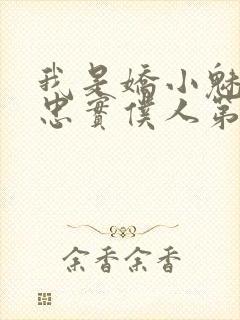 我是嬌小魅
忠實僕人第
余香余香